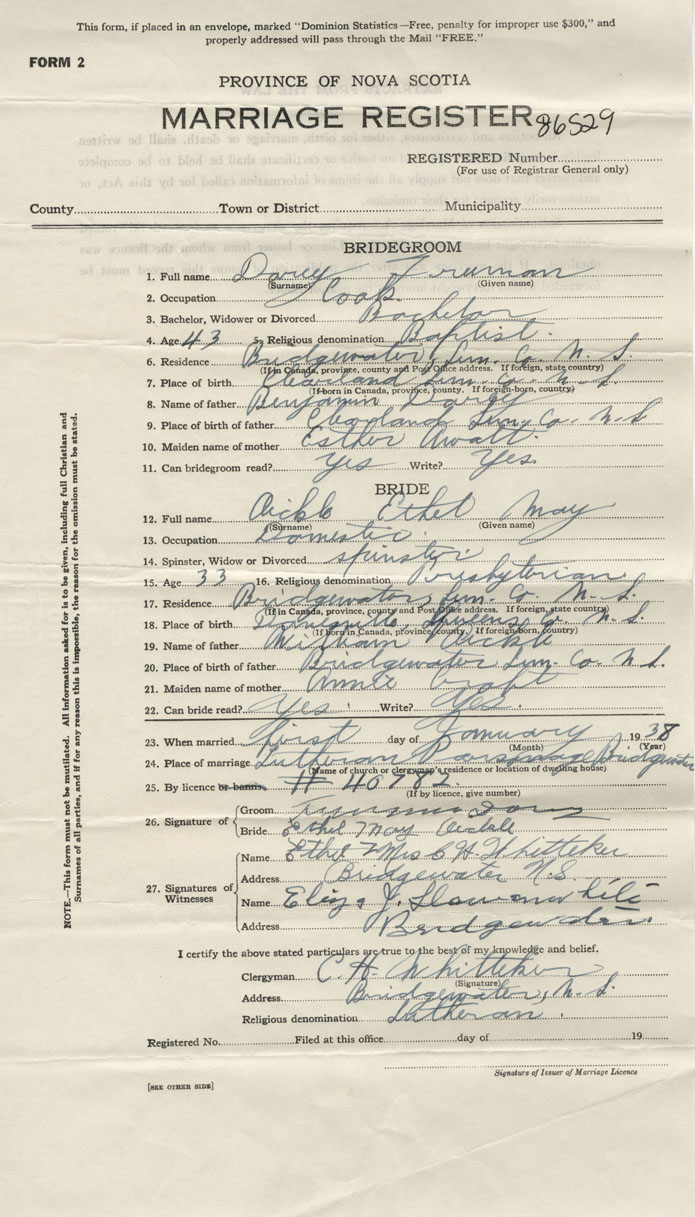 This form, if placed in an envelope, marked "Dominion Statistics—Free, penalty for improper use $300," and
properly addressed will pass through the Mail "FREE."
FORM 2
PROVINCE OF NOVA SCOTIA
MARRIAGE REGISTER 86529
REGISTERED Number
(For use of Registrar General only)
County Town or District Municipality
BRIDEGROOM
1. Full name Darey Freeman
(Surname) (Given name)
2. Occupation Cook
3. Bachelor, Widower or Divorced Bachelor
4. Age 43 5. Religious denomination Baptist
6. Residence Bridgewater, Lun. Co. N. S.
(If in Canada, province, county and Post Office address. If foreign, state country)
7. Place of birth Clearland Lun. Co. N. S.
(If born in Canada, province, county. If foreign-born, country)
8. Name of father Benjamin Darey
9. Place of birth of father Clearland Lun. Co. N. S.
10. Maiden name of mother Esther
11. Can bridegroom read? Yes Write? Yes
BRIDE
12. Full name Aickle Ethel May
(Surname) (Given name)
13. Occupation Domestic
14. Spinster, Widow or Divorced spinster
15. Age 33 16. Religious denomination Presbyterian
17. Residence Bridgewater, Lun. Co. N. S.
(If in Canada, province, county and Post Office address. If foreign, state country)
18. Place of birth Queens Co. N. S.
(If born in Canada, province, county, If foreign-born, country)
19. Name of father William Aickle
20. Place of birth of father Bridgewater Lun. Co. N. S.
21. Maiden name of mother Annie Croft
22. Can bride read? Yes. Write? Yes.
23. When married first day of January 1938
(Month) (Year)
24. Place of marriage Lutheran Parsonage Bridgewater
(Name of church or clergyman's residence or location of dwelling house)
25. By licence or banns. # 40782.
(If by licence, give number)
26. Signature of Groom Freeman Darey
Bride Ethel May Aickle
27. Signatures of Witnesses
Name Ethel F Mrs C H Whitteker
Address Bridgewater N.S.
Name Eliza J. Slawenwhite
Address Bridgewater
I certify the above stated particulars are true to the best of my knowledge and belief.
Clergyman C. H. Whitteker
(Signature)
Address Bridgewater, N. S.
Religious denomination Lutheran.
Registered No. Filed at this office day of 19
Signature of Issuer of Marriage Licence
[SEE OTHER SIDE]
NOTE.—This form must not be mutilated. All information asked for is to be given, including full Christian and
Surnames of all parties, and if for any reason this is impossible, the reason for the omission must be stated.